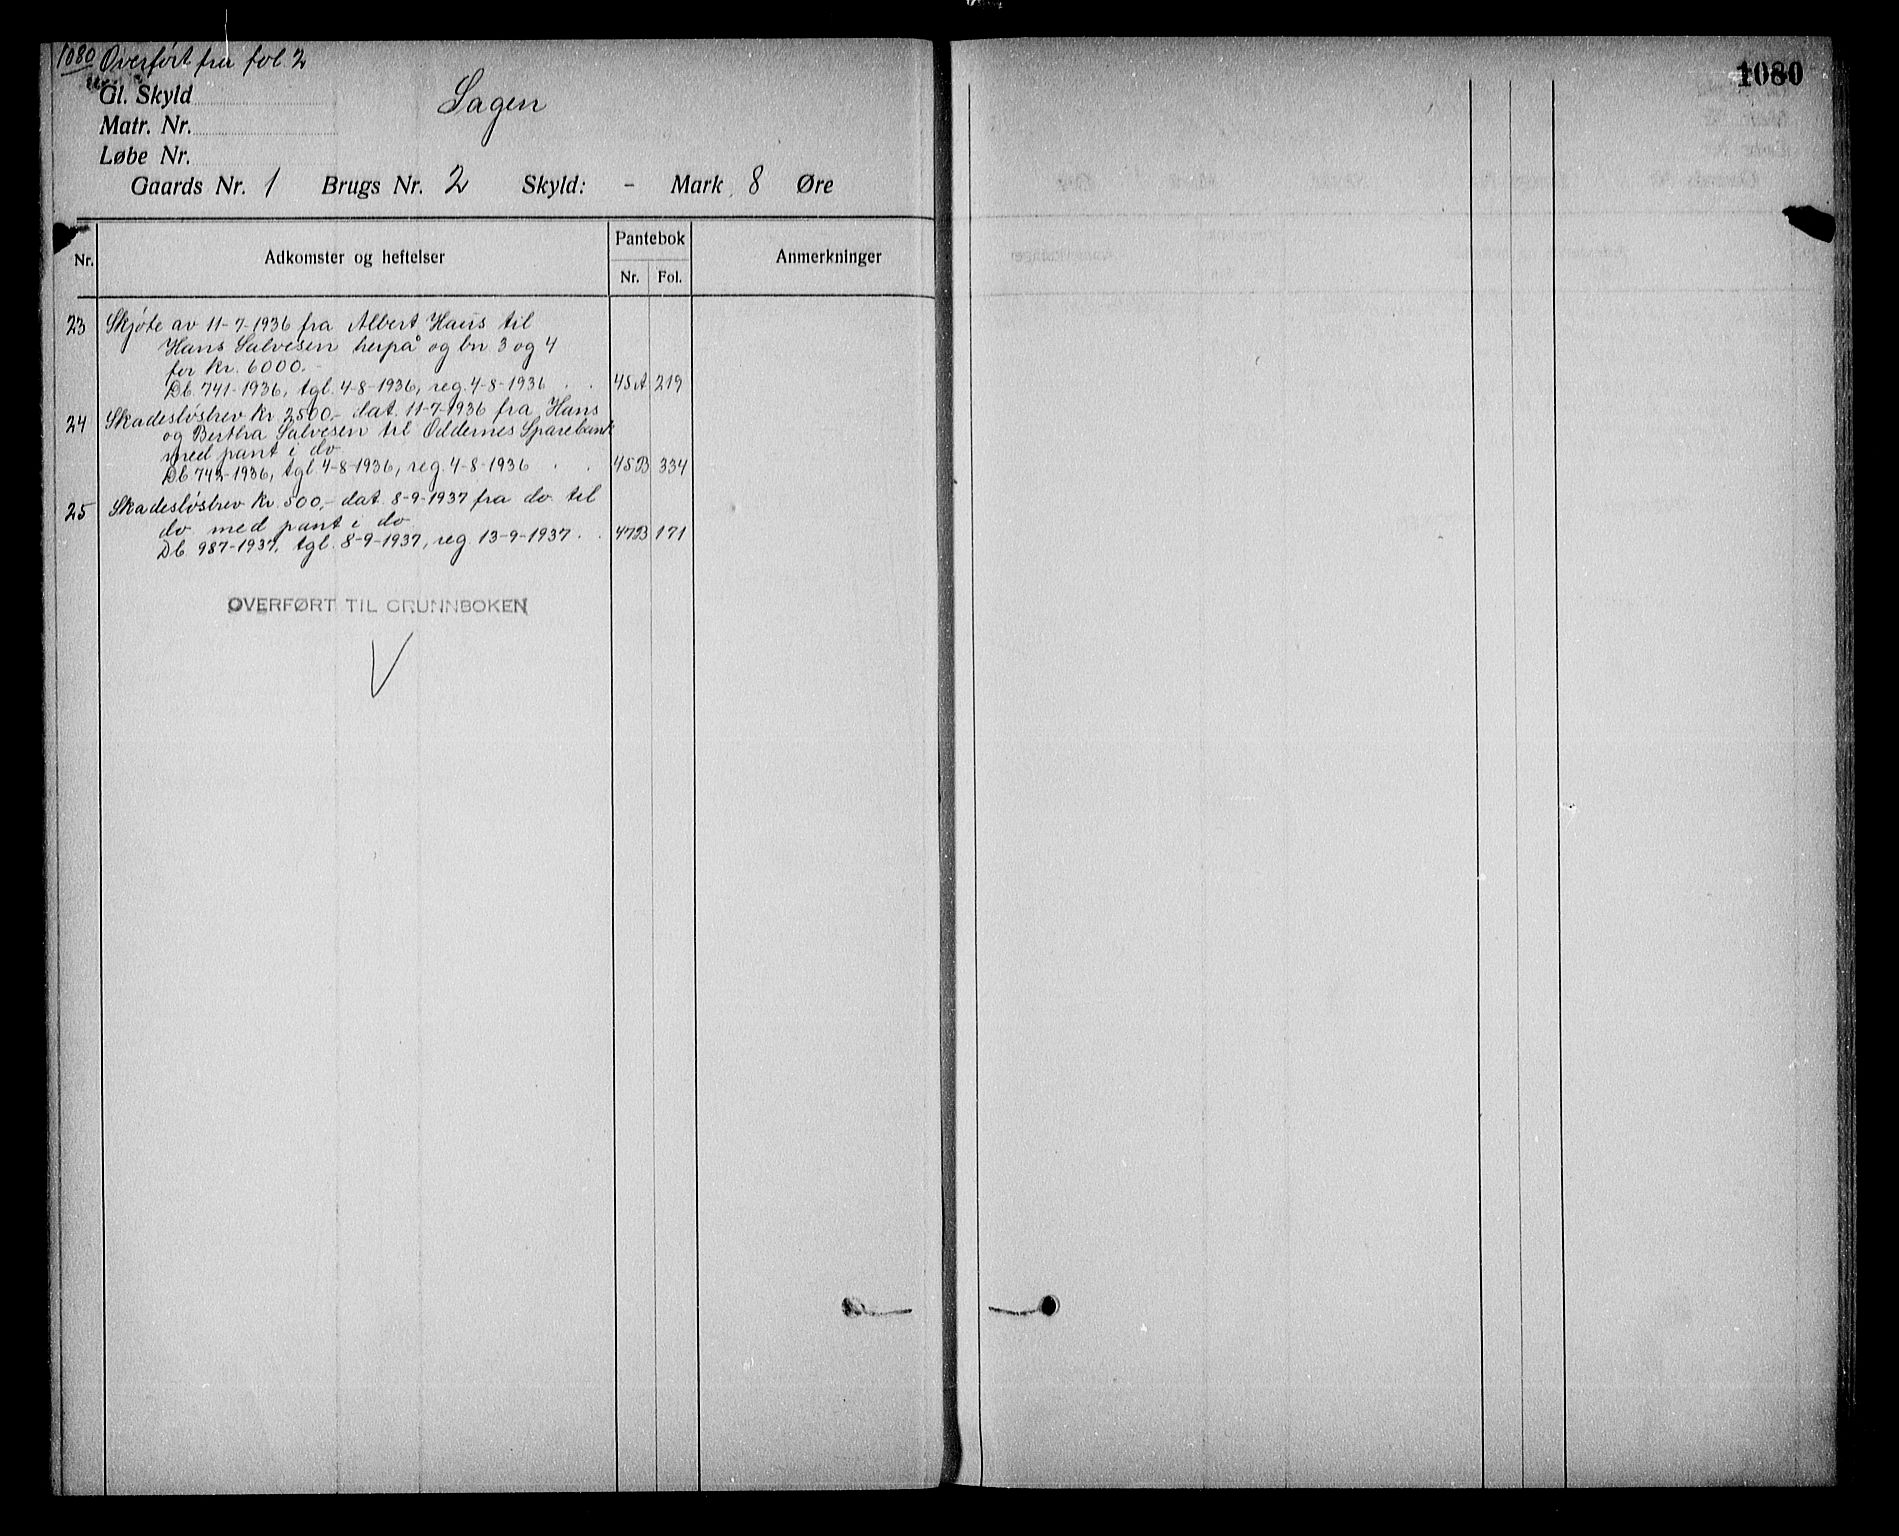 1080 Overført fra fol. 2
1080
Gl. Skyld
Sagen
Matr. Nr.
Løbe Nr.
Gaards Nr. 1 Brugs Nr. 2 Skyld: - Mark 8 Øre
Nr. Adkomster og heftelser Pantebok Anmerkninger
Nr. Fol.
23 Skjøte av 11-7-1936 fra Albert Haus til
Hans Salvesen herpå og bn 3 og 4
for kr. 6000.-
Db. 741-1936, tgl. 4-8-1936, reg. 4-8-1936 . . 45A 219
24 Skadesløsbrev kr. 2500,- dat. 11-7-1936 fra Hans
og Bertha Salvesen til Oddernes Sparebank
med pant i do
Db 742-1936, tgl 4-8-1936, reg. 4-8-1936 . . 45B 334
25 Skadesløsbrev kr. 500,- dat. 8-9-1937 fra do. til
do med pant i do
Db 987-1937, tgl. 8-9-1937, reg. 13-9-1937 . . 47B 171
OVERFØRT TIL GRUNNBOKEN